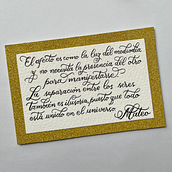 El afecto es como la luz del mediodía
y no necesita la presencia del otro
para manifestarse.
La separación entre los seres
también es ilusoria, puesto que todo
está unido en el universo
Mateo